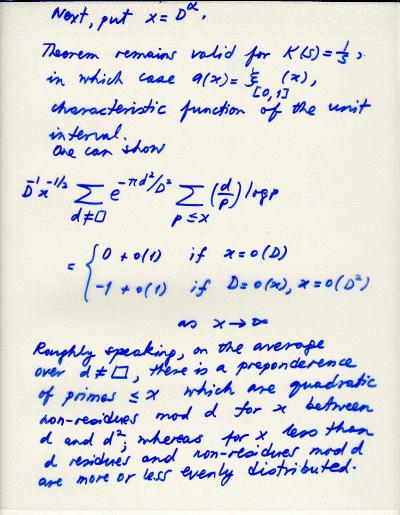 Next, put x = D^α.
Theorem remains valid for K(s) = 1/s,
in which case a(x) = ξ_[0,1] (x),
characteristic function of the unit
interval.
One can show
D^-1 x^-1/2 ∑_{d≠□} e^{-πd²/D²} ∑_{p≤x} (d/p) log p
= { 0 + o(1) if x = o(D)
-1 + o(1) if D = o(x), x = o(D²)
as x → ∞
Roughly speaking, on the average
over d ≠ □, there is a preponderence
of primes ≤ x which are quadratic
non-residues mod d for x between
d and d²; whereas for x less than
d residues and non-residues mod d
are more or less evenly distributed.